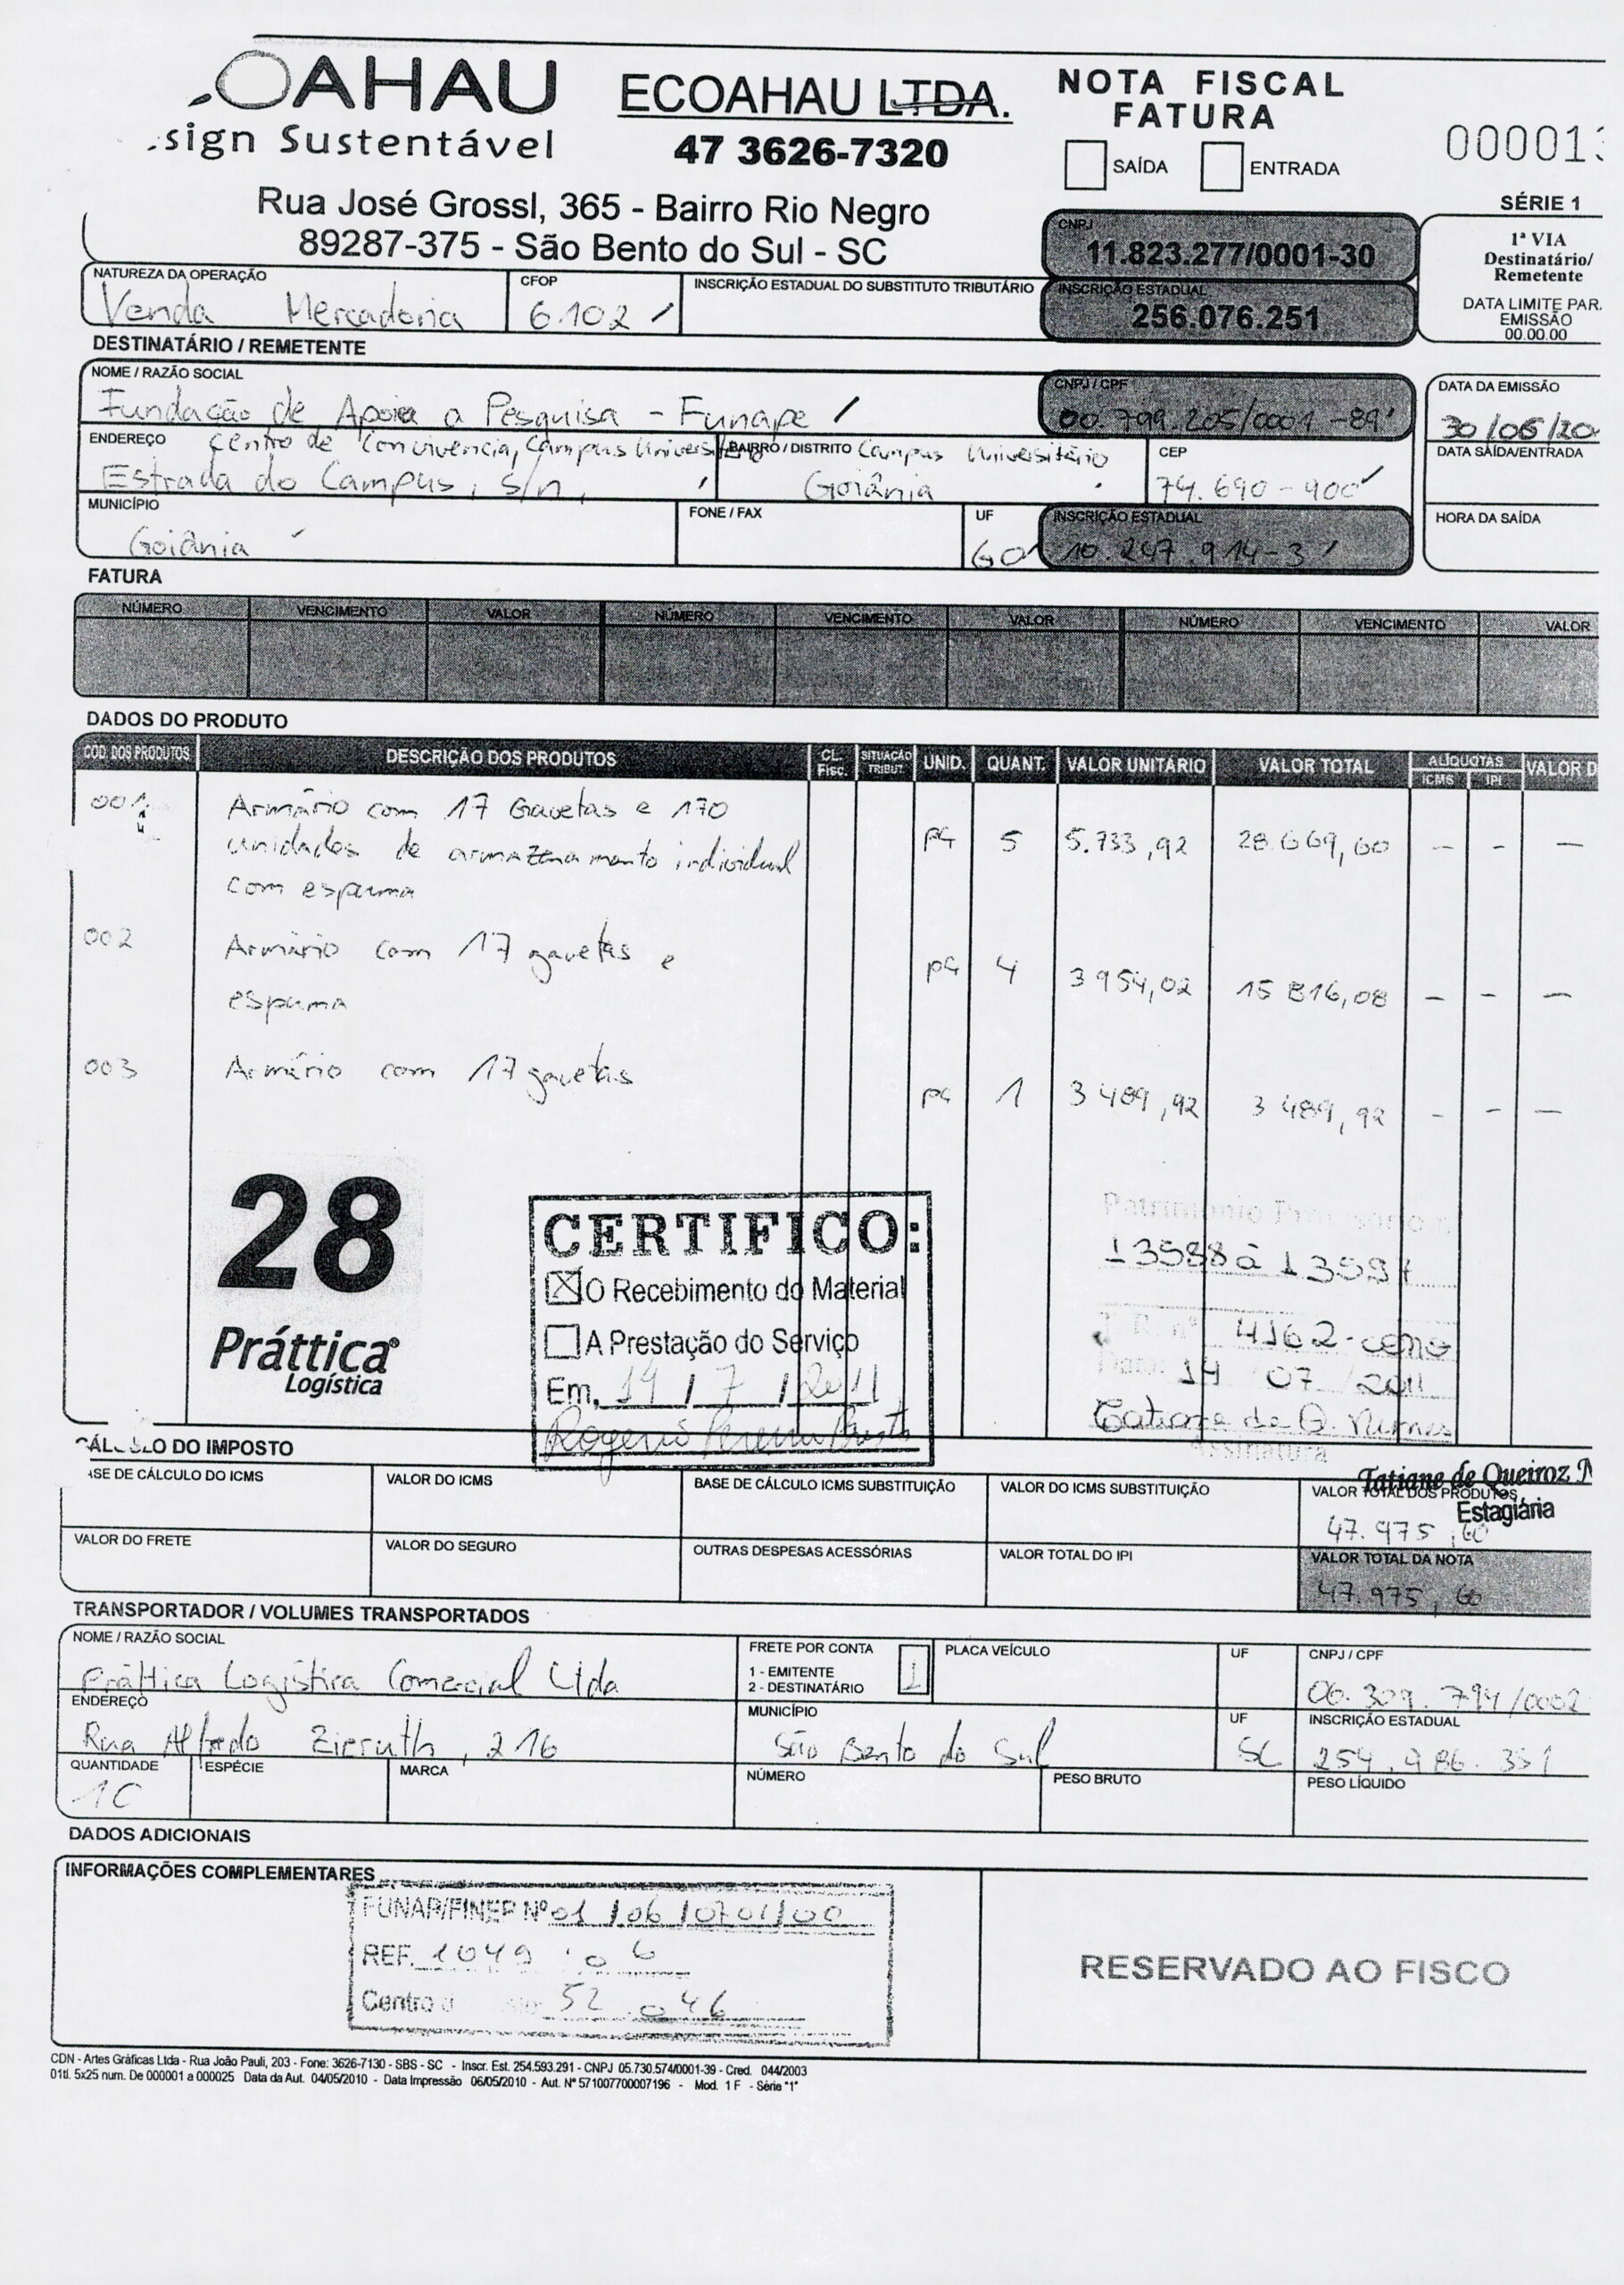 OAHAU
sign Sustentável
ECOAHAU LTDA.
47 3626-7320
Rua José Grossl, 365 - Bairro Rio Negro
89287-375 - São Bento do Sul - SC
NOTA FISCAL
FATURA
SAÍDA ENTRADA
000013
SÉRIE 1
1ª VIA
Destinatário/
Remetente
DATA LIMITE PAR
EMISSÃO
00.00.00
CNPJ
11.823.277/0001-30
INSCRIÇÃO ESTADUAL
256.076.251
NATUREZA DA OPERAÇÃO CFOP INSCRIÇÃO ESTADUAL DO SUBSTITUTO TRIBUTÁRIO
Venda Mercadoria 6.102
DESTINATÁRIO / REMETENTE
NOME / RAZÃO SOCIAL CNPJ / CPF DATA DA EMISSÃO
Fundação de Apoio a Pesquisa - Funape 00.799.205/0001-89 30/06/20
ENDEREÇO Centro de Convivencia, Campus Universitário BAIRRO / DISTRITO Campus Universitário CEP DATA SAÍDA/ENTRADA
Estrada do Campus, s/n, Goiânia 74.690-900
MUNICÍPIO FONE / FAX UF INSCRIÇÃO ESTADUAL HORA DA SAÍDA
Goiânia GO 10.247.914-3
FATURA
NÚMERO VENCIMENTO VALOR NÚMERO VENCIMENTO VALOR NÚMERO VENCIMENTO VALOR
DADOS DO PRODUTO
COD. DOS PRODUTOS DESCRIÇÃO DOS PRODUTOS CL. Fisc. SITUAÇÃO TRIBUT. UNID. QUANT. VALOR UNITÁRIO VALOR TOTAL ALÍQUOTAS ICMS IPI VALOR D
001 Armário com 17 Gavetas e 170
unidades de armazenamento individual pç 5 5.733,92 28.669,60 - - -
com espuma
002 Armário com 17 gavetas e
espuma pç 4 3 954,02 15 816,08 - - -
003 Armário com 17 gavetas
pç 1 3 489,92 3 489,92 - - -
28
Práttica
Logística
CERTIFICO:
X O Recebimento do Material
A Prestação do Serviço
Em, 14 / 7 / 2011
Patrimônio Provisório
13588 à 13597
4162-
Data: 14 07 2011
Assinatura
Tatiane de Queiroz N
Estagiária
CÁLCULO DO IMPOSTO
ASE DE CÁLCULO DO ICMS VALOR DO ICMS BASE DE CÁLCULO ICMS SUBSTITUIÇÃO VALOR DO ICMS SUBSTITUIÇÃO VALOR TOTAL DOS PRODUTOS
47.975,60
VALOR DO FRETE VALOR DO SEGURO OUTRAS DESPESAS ACESSÓRIAS VALOR TOTAL DO IPI VALOR TOTAL DA NOTA
47.975,60
TRANSPORTADOR / VOLUMES TRANSPORTADOS
NOME / RAZÃO SOCIAL FRETE POR CONTA PLACA VEÍCULO UF CNPJ / CPF
1 - EMITENTE
2 - DESTINATÁRIO
1
Práttica Logística Comercial Ltda 06.309.794/0002
ENDEREÇO MUNICÍPIO UF INSCRIÇÃO ESTADUAL
Rua Alfredo Zieruth, 216 São Bento do Sul SC 254.986.351
QUANTIDADE ESPÉCIE MARCA NÚMERO PESO BRUTO PESO LÍQUIDO
10
DADOS ADICIONAIS
INFORMAÇÕES COMPLEMENTARES
FUNAP/FINEP Nº 01/06/0701/00
REF. 1049 06
Centro 52 046
RESERVADO AO FISCO
CDN - Artes Gráficas Ltda - Rua João Pauli, 203 - Fone: 3626-7130 - SBS - SC - Inscr. Est. 254.593.291 - CNPJ 05.730.574/0001-39 - Cred. 044/2003
01tl. 5x25 num. De 000001 a 000025 Data da Aut. 04/05/2010 - Data Impressão 06/05/2010 - Aut. Nº 571007700007196 - Mod. 1 F - Série "1"